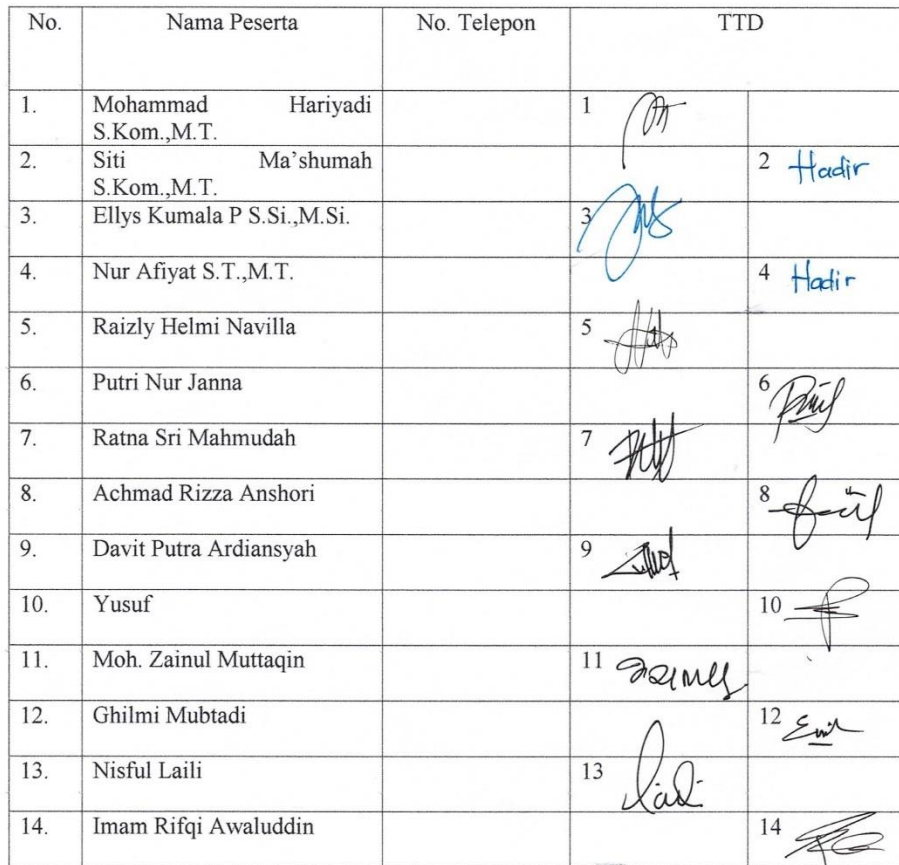 No. Nama Peserta No. Telepon TTD
1. Mohammad Hariyadi 1
S.Kom.,M.T.
2. Siti Ma'shumah 2 Hadir
S.Kom.,M.T.
3. Ellys Kumala P S.Si.,M.Si. 3
4. Nur Afiyat S.T.,M.T. 4 Hadir
5. Raizly Helmi Navilla 5
6. Putri Nur Janna 6
7. Ratna Sri Mahmudah 7
8. Achmad Rizza Anshori 8
9. Davit Putra Ardiansyah 9
10. Yusuf 10
11. Moh. Zainul Muttaqin 11
12. Ghilmi Mubtadi 12
13. Nisful Laili 13
14. Imam Rifqi Awaluddin 14